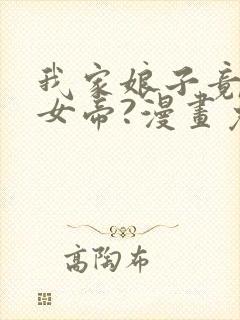 我家娘子竟
女帝?漫畫
高陶布